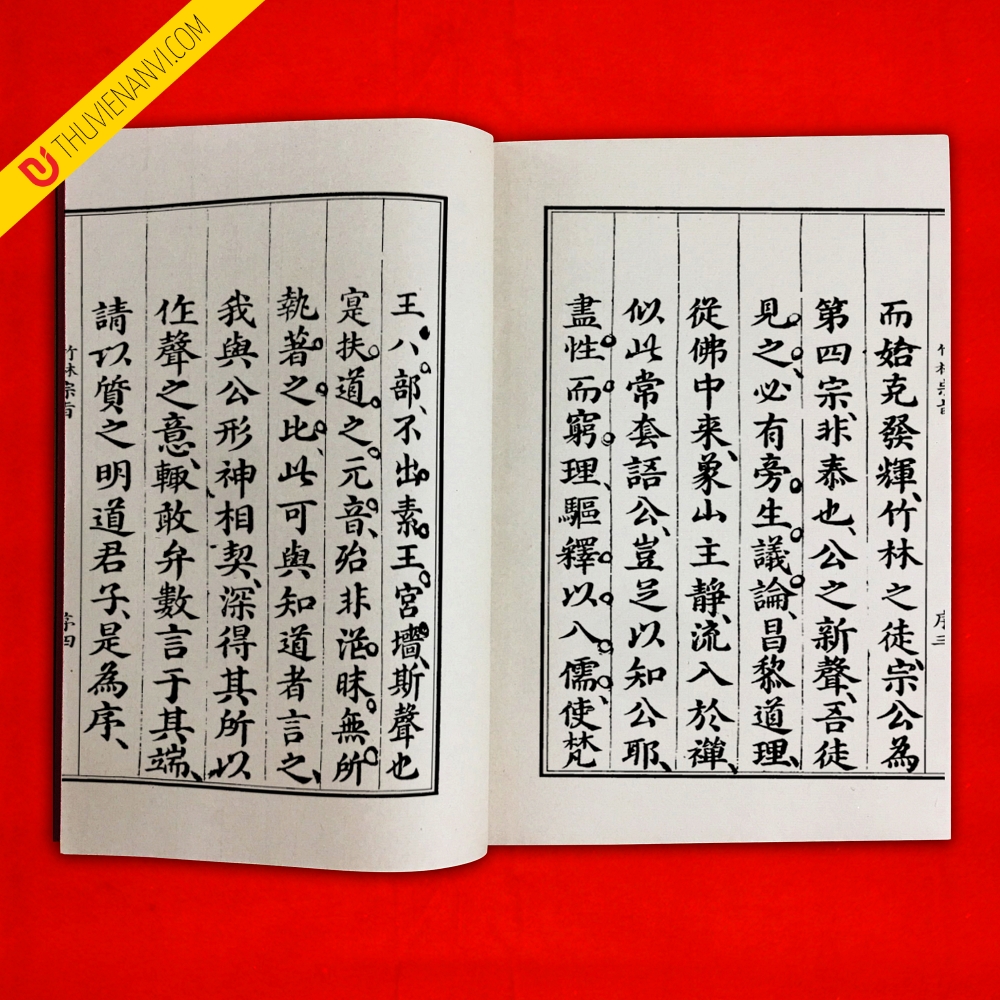 THUVIENANVI.COM
竹林宗旨
序三
而始克發輝、竹林之徒、宗公為
第四宗、非泰也、公之新聲、吾徒
見之、必有旁生議論、昌黎道理、
從佛中来、象山主靜、流入於禪、
似此常套語公、豈足以知公耶、
盡性而窮理、驅釋以八儒、使梵
王八部、不出素王宮墻、斯聲也
寔扶道之元音、殆非𣵀昧無所
執著之比、此可與知道者言之、
我與公形神相契、深得其所以
作聲之意、輙敢弁數言于其端、
請以質之明道君子、是為序、
竹林宗旨
序四